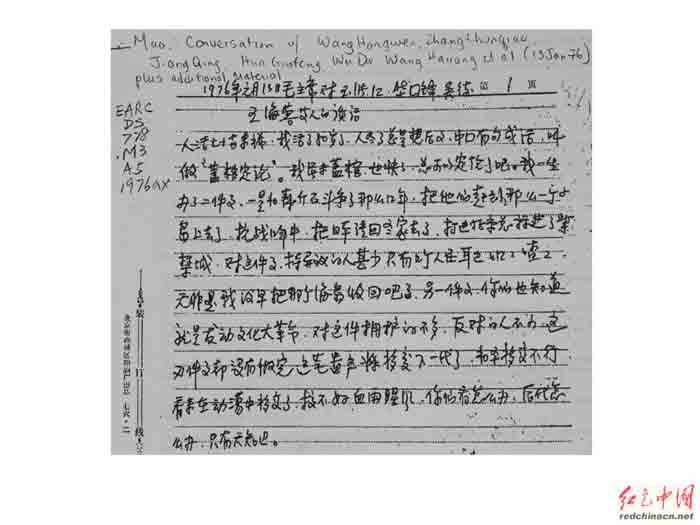 Mao. Conversation w/ Wang Hongwen, Zhang Chunqiao,
Jiang Qing, Hua Guofeng, Wu De, Wang Hairong et al (13 Jan 76)
plus additional material
EARC
DS
778
.M3
A5
1976ax
毛主席对王洪文 华国锋 吴德 1
王海蓉等人的谈话
人活七十古来稀，我活了八十了，人老了总是想后事，中国有句成话，叫
做“盖棺定论”。我虽未盖棺，也快了，总可以定论了吧。我一生
办了二件事，一是和蒋介石斗争了那么几十年，把他赶到那么一个小
岛上去了，抗战八年，把日本请回老家去了，打进北京，总算进了紫
禁城。对这件事，持异议的人甚少，只有几个人在耳边
无非是我没早把那个海岛收回吧了。另一件事，你们也知道
就是发动文化大革命。对这件拥护的不多，反对的人不少。这
两件事都没有做完，这笔遗产将移交下一代了，和平移交不行
看来在动荡中移交了，搞不好血雨腥风，你们看怎么办，后代怎
么办，只有天知道。
装
订
线
红色中国
redchinacn.net